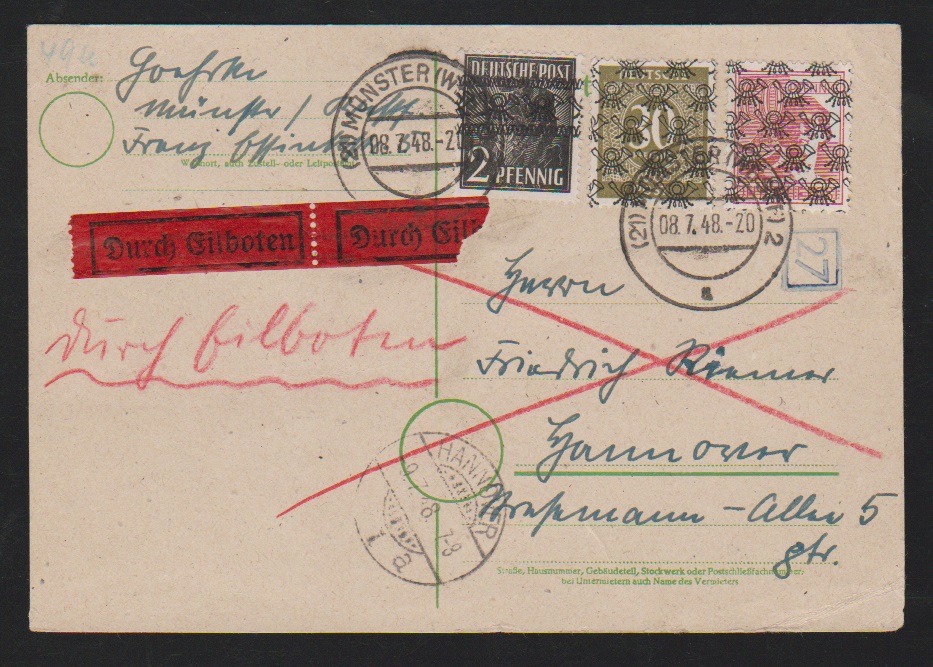 49a
Absender:
Goehrke
Münster /
Franz
Wohnort, auch Zustell- oder Leitpostamt
(21) MÜNSTER (W
08.7.48.-20
DEUTSCHE POST
2 PFENNIG
30
(21) MÜNSTER (WESTF) 2
08.7.48.-20
a
27
Durch Eilboten
Durch Eil
durch Eilboten
Herrn
Friedrich Riemer
Hannover
Stresemann-Allee 5
ptr.
HANNOVER
9.7.48. 7-8
1 a
Straße, Hausnummer, Gebäudeteil, Stockwerk oder Postschließfachnummer;
bei Untermietern auch Name des Vermieters